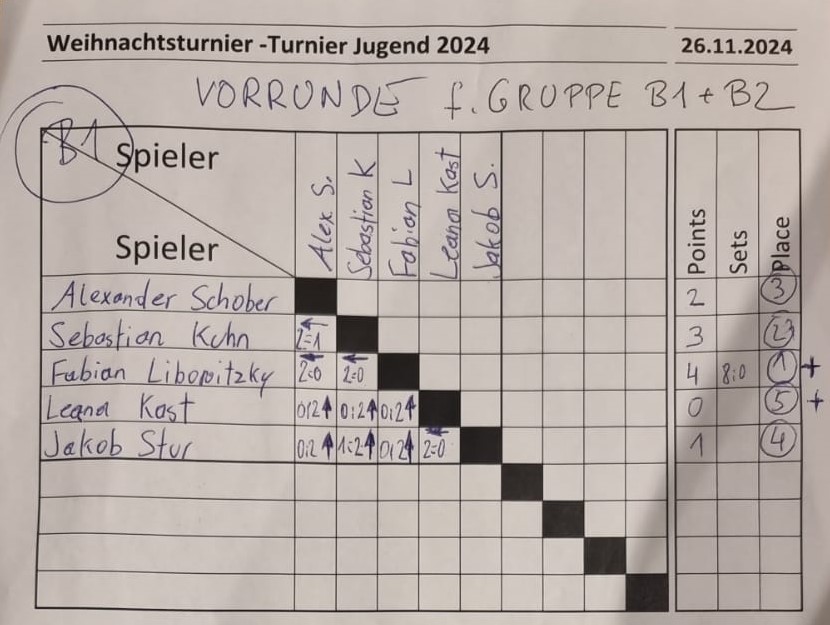 Weihnachtsturnier -Turnier Jugend 2024 26.11.2024
VORRUNDE f. GRUPPE B1 + B2
B1 Spieler
Spieler
Alex S. Sebastian K Fabian L Leana Kast Jakob S. Points Sets Place
Alexander Schober 2 3
Sebastian Kuhn 2=1 3 2
Fabian Libowitzky 2=0 2=0 4 8:0 1 +
Leana Kast 0:2 0:2 0:2 0 5 +
Jakob Stur 0:2 1:2 0:2 2=0 1 4